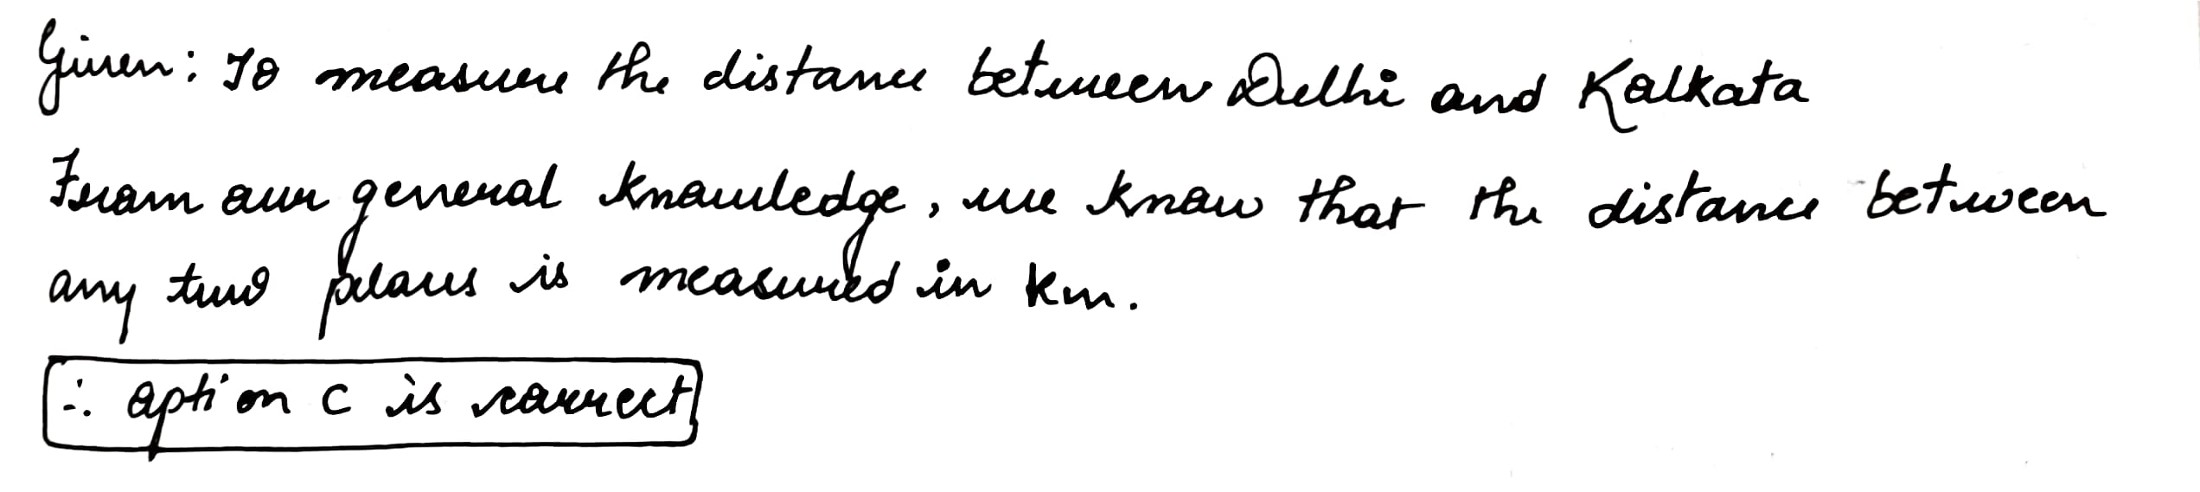 Given: To measure the distance between Delhi and Kolkata
From our general knowledge, we know that the distance between
any two places is measured in km.
∴ option C is correct